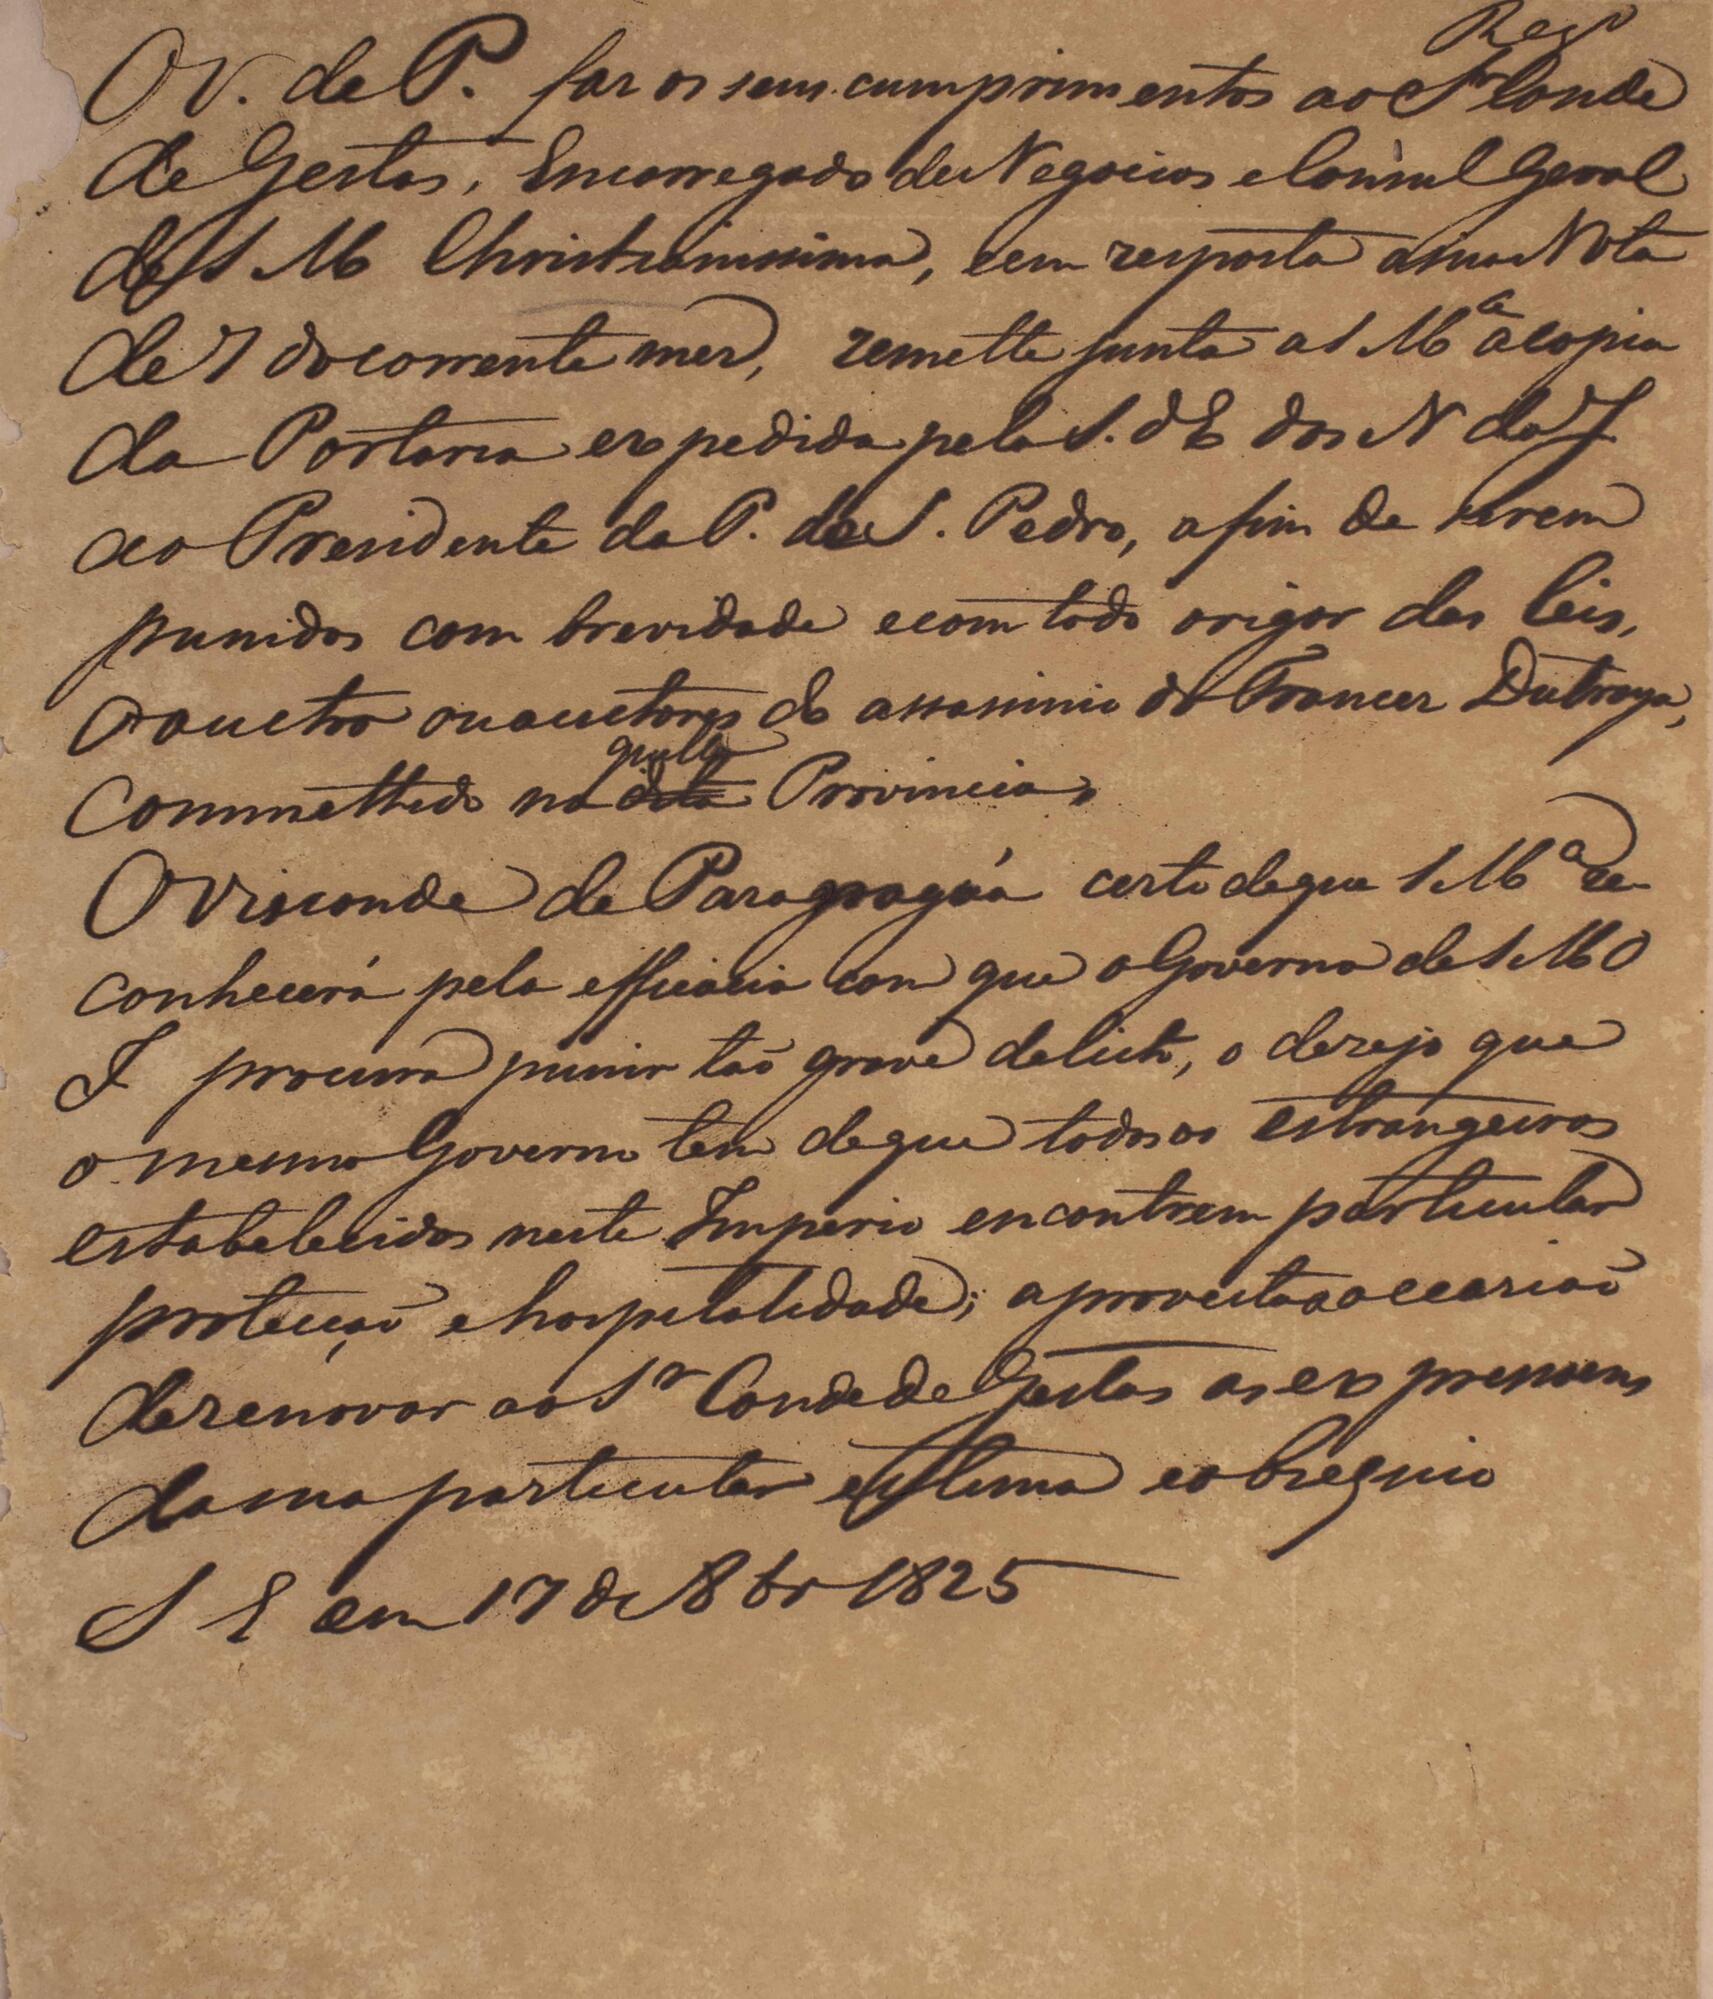 Reg.º
O V. de P. faz os seus cumprimentos ao Sr Conde
de Gestas, Encarregado de Negocios e Consul Geral
de S M Christianissima, e em resposta a sua Nota
de 7 do corrente mez, remette junta a S Mª a copia
da Portaria expedida pela S. d E dos N da J
ao Presidente da P. de S. Pedro, a fim de serem
punidos com brevidade e com todo o rigor das leis,
o auctor ou auctores do assassinio do Francez Dutroya,
commettido na quella dita Provincia,
O Visconde de Paragoaguá certo de que S Mª re
conhecerá pela efficacia com que o Governo de S M O
I procura punir taõ grave delicto, o dezejo que
o mesmo Governo tem de que todos os estrangeiros
estabelecidos neste Imperio encontrem particular
protecçaõ e hospitalidade; aproveita a occasiaõ
de renovar ao Sr Conde de Gestas as expressoens
da sua particular estima e obsequio
S E em 17 de 8br 1825